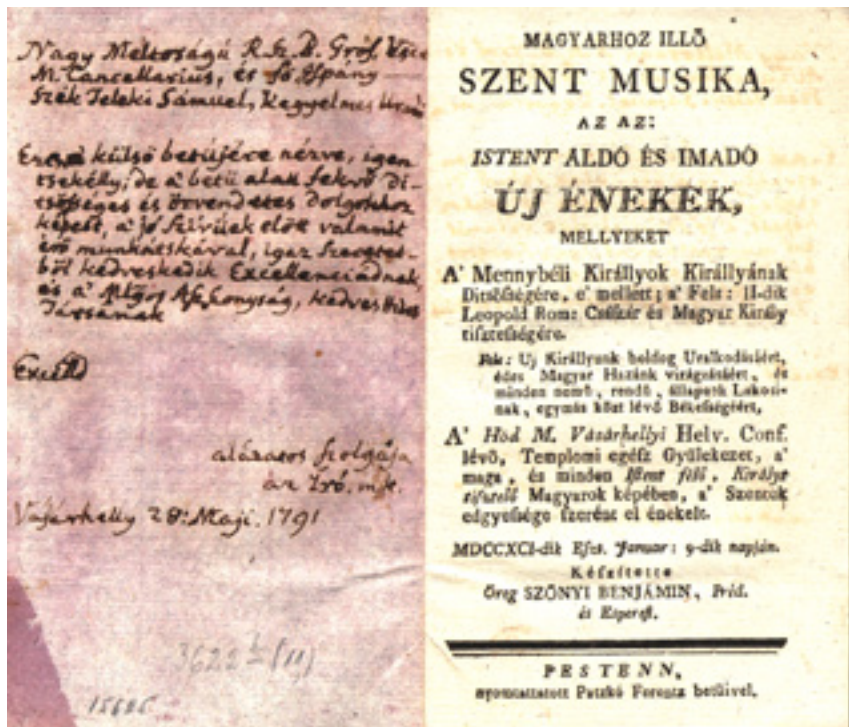 Nagy Méltoságú R. Sz. B. Gróf,
M. Cancellarius, és fő Ispány
Szék Teleki Sámuel, Kegyelmes
külső betűjére nézve, igen
tsekélly, de a' betü alatt fekvő di-
tsősséges és örvendetes dolgokhoz
képest, a' jó szivűek előtt valamit
érő munkátskával, igaz szeretet-
ből kedveskedik Excellentziádnak
és a' Aszszonyság, kedves
Társának
alázatos szolgája
az Iró. mk.
Vásárhelly 28: Maji. 1791
3622
15625
MAGYARHOZ ILLŐ
SZENT MUSIKA,
AZ AZ:
ISTENT ÁLDÓ ÉS IMADÓ
ÚJ ÉNEKEK,
MELLYEKET
A' Mennybéli Királlyok Királlyának
Ditsősségére, e' mellett; a' Fels: II-dik
Leopold Rom: Császár és Magyar Király
tisztességére.
Fels: Uj Királlyunk boldog Uralkodásáért,
édes Magyar Hazánk virágzásáért, és
minden nemű, rendű, állapotú Lakosi-
nak, egymás közt lévő Békességéért,
A' Hód M. Vásárhellyi Helv. Conf.
lévő, Templomi egész Gyülekezet, a'
maga, és minden Istent félő, Királyt
tisztelő Magyarok képében, a' Szentek
edgyessége szerént el énekelt.
MDCCXCI-dik Eszt. Januar: 9-dik napján.
Készítette
Öreg SZŐNYI BENJÁMIN, Préd.
és Esperest.
PESTENN,
nyomtattatott Patzkó Ferentz betűivel.